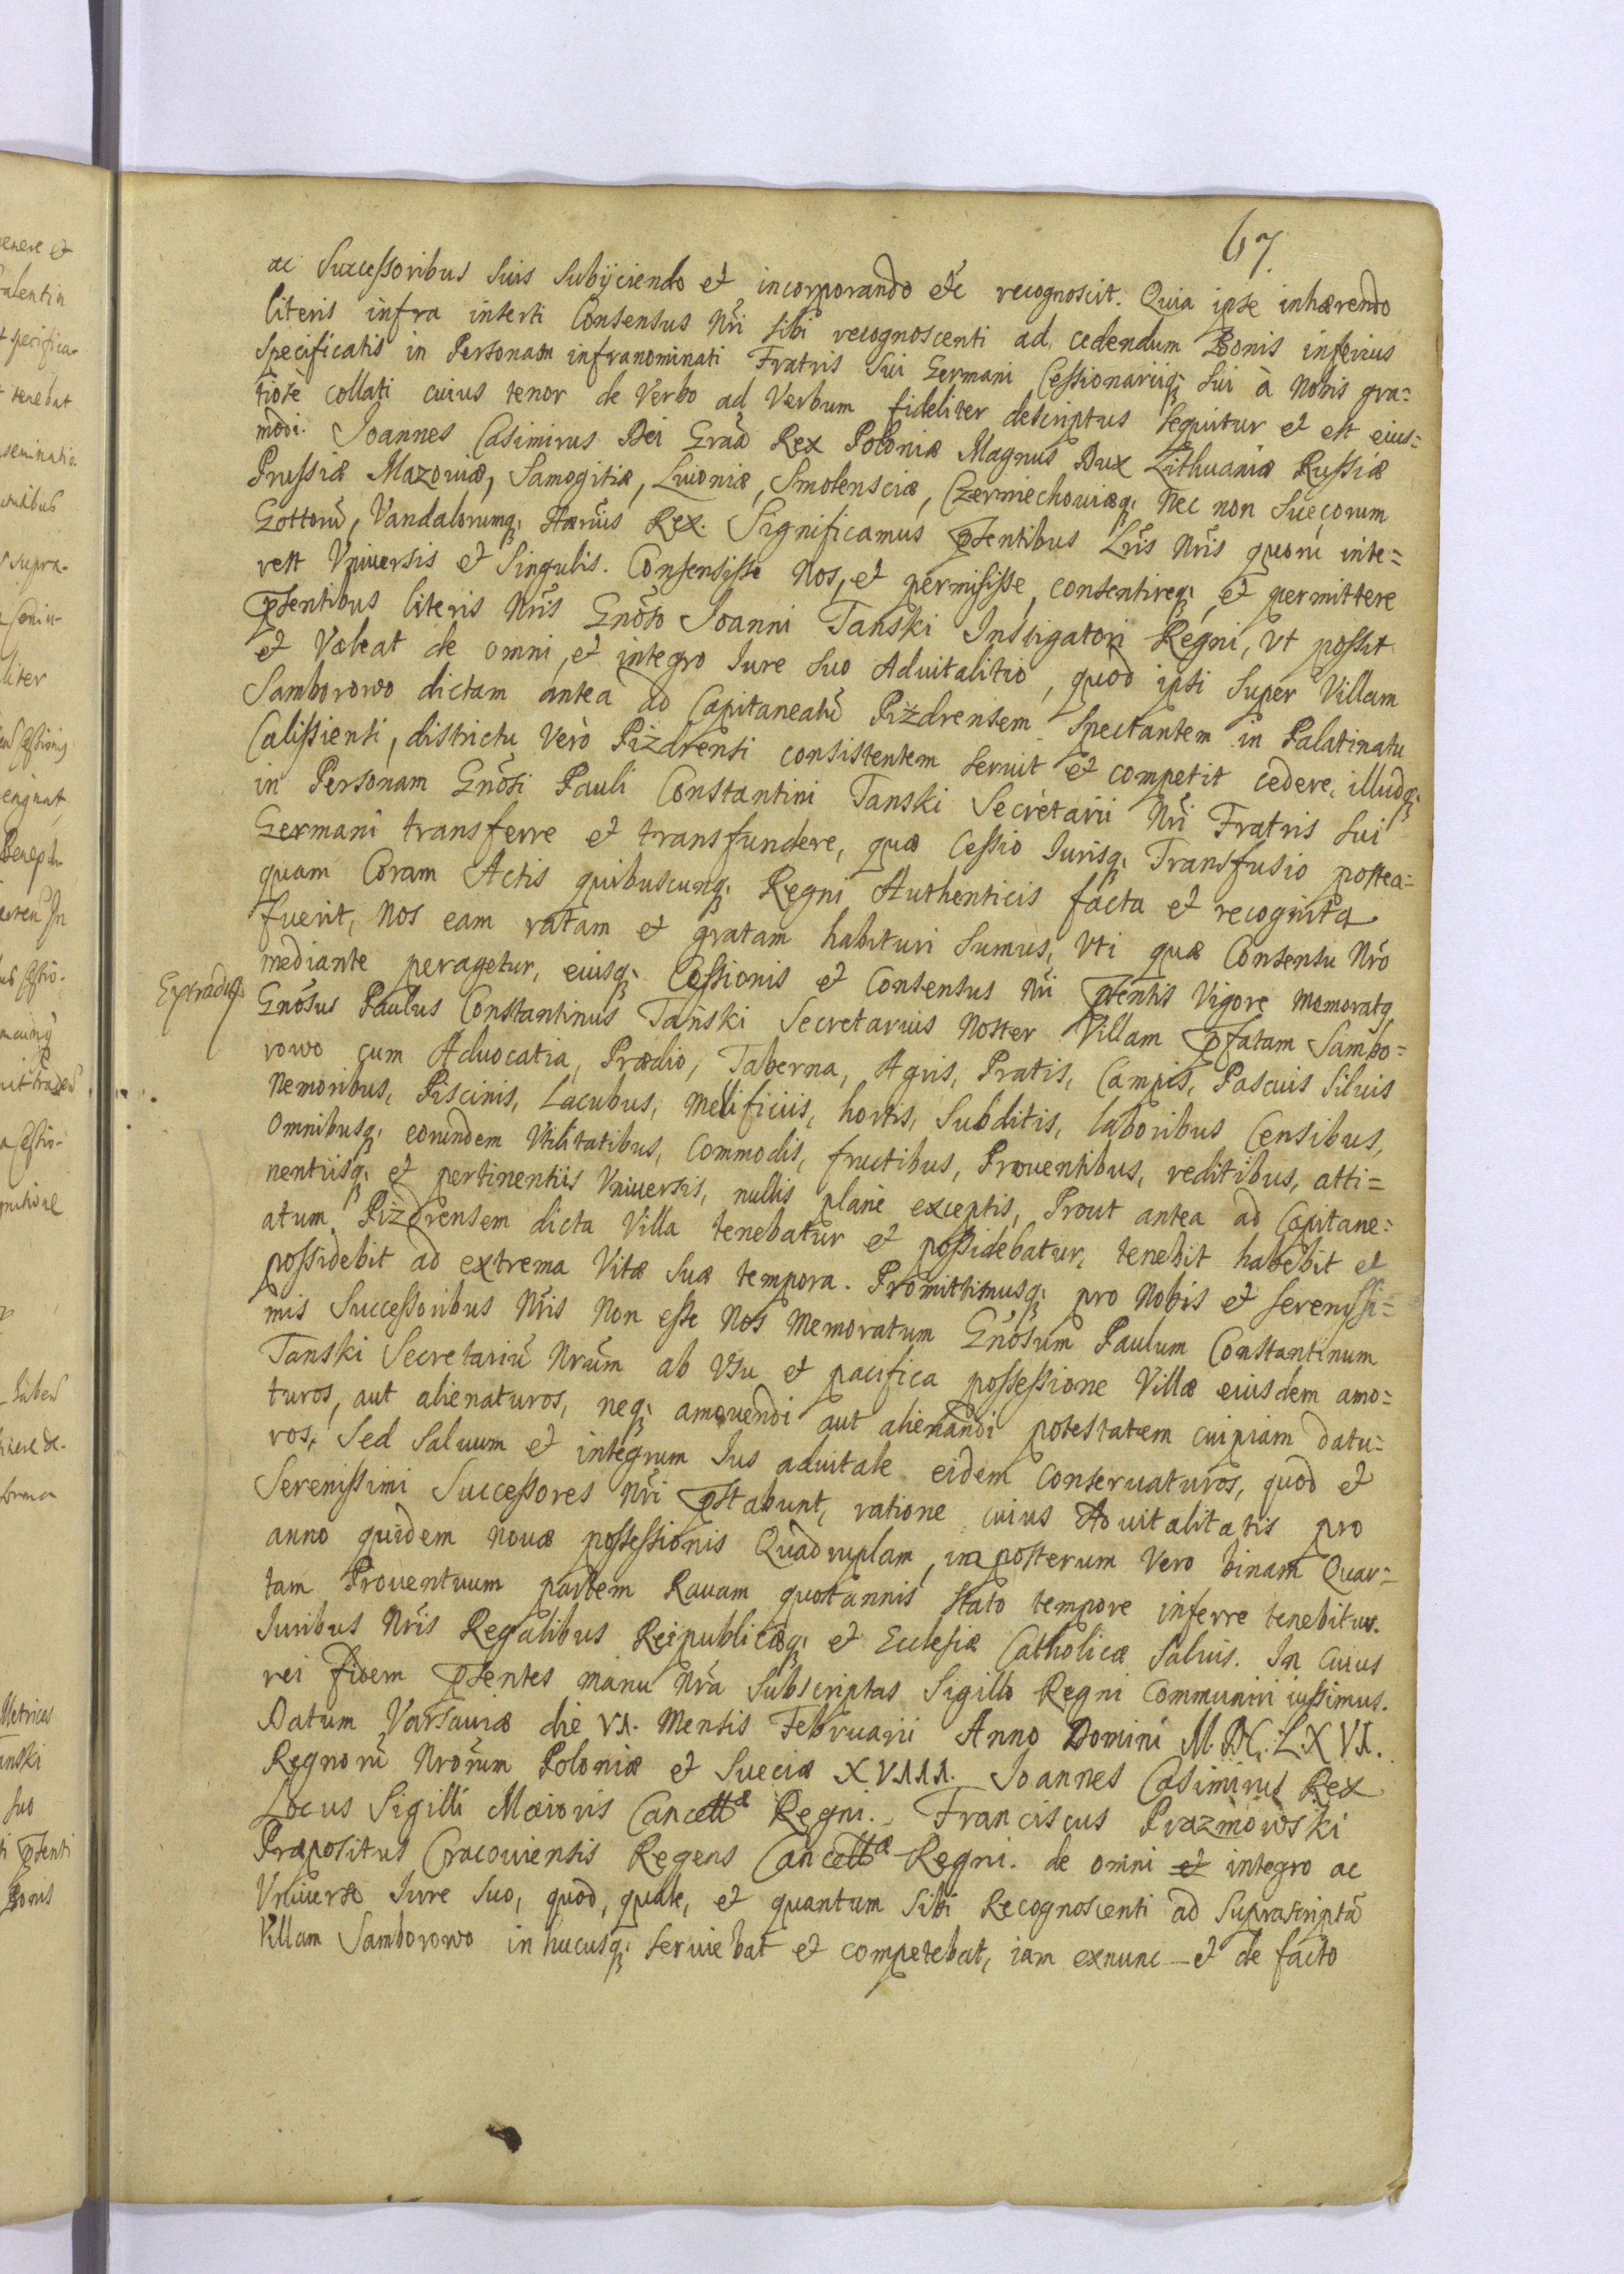 67
ac Successoribus Suis Subijciendo et incorporando etc recognoscit. Quia ipse inhærendo
literis infra inserti Consensus Nri sibi recognoscenti ad cedendum Bonis inferius
Specificatis in Personam infranominati Fratris Sui Germani Cessionariiq; Sui à Nobis gra=
tiose collati cuius tenor de Verbo ad Verbum fideliter descriptus Sequitur et est eius=
modi. Joannes Casimirus Dei Grãa Rex Poloniæ Magnus Dux Lithuaniæ Russiæ
Prussiæ Mazouiæ, Samogitiæ, Liuoniæ, Smolensciæ, Czerniechouiæq; Nec non Suecorum
Gottorũ, Vandalorumq; Hærius Rex. Significamus pñsentibus Lris Nris quorũ inte=
rest Vniuersis et Singulis. Consensisse Nos, et permisisse, consentireq; et permittere
pñsentibus literis Nris Gnoso Joanni Tanski Instigatori Regni, Vt possit
et Valeat de omni, et integro Iure Suo Aduitalitio, quod ipsi Super Villam
Samborowo dictam antea ad Capitaneatũ Piżdrensem Spectantem in Palatinatu
Calissiensi, districtu Verò Piżdrensi consistentem seruit et competit cedere, illudq;
in Personam Gnosi Pauli Constantini Tanski Secretarii Nri Fratris Sui
Germani transferre et transfundere, quæ Cessio Iurisq; Transfusio postea=
quam Coram Actis quibuscunq; Regni Authenticis facta et recognita
fuerit, Nos eam ratam et gratam habituri Sumus, Vti quæ Consensu Nro
mediante peragetur, eiusq; Cessionis et Consensus Nri pñsentis Vigore Memoratq
Gnosus Paulus Constantinus Tański Secretarius Noster Villam pfatam Sambo=
rowo cum Aduocatia, Prædio, Taberna, Agris, Pratis, Campis, Pascuis Siluis
Nemoribus, Piscinis, Lacubus, Mellificiis, hortis, Subditis, laboribus Censibus,
Omnibusq; eorundem Vtilitatibus, Commodis, fructibus, Prouentibus, reditibus, atti=
nentiisq; et pertinentiis Vniuersis, nullis plane exceptis, Prout antea ad Capitane=
atum Piżdrensem dicta Villa tenebatur et possidebatur, tenebit habebit et
possidebit ad extrema Vitæ Suæ tempora. Promittimusq; pro Nobis et Serenissi=
mis Successoribus Nris Non esse Nos Memoratum Gnosum Paulum Constantinum
Tanski Secretariũ Nrum ab Vsu et pacifica possessione Villæ eiusdem amo=
turos, aut alienaturos, neq; amouendi aut alienandi potestatem cuipiam datu=
ros, Sed Saluum et integrum Ius aduitale eidem Conseruaturos, quod et
Serenissimi Successores Nri pstabunt, ratione cuius Aduitalitatis pro
anno quidem Nouæ possessionis Quadruplam, in posterum Vero binam Quar=
tam Prouentuum partem Rauam quotannis Stato tempore inferre tenebitur.
Iuribus Nris Regalibus Reipublicæq; et Ecclesiæ Catholicæ Saluis. In Cuius
rei fidem pñsentes manu Nra Subscriptas Sigillo Regni Communiri iussimus.
Datum Varsauiæ die VI. Mensis Februarii Anno Domini M.DC.LXVI.
Regnorũ Nrorum Poloniæ et Sueciæ XVIII. Joannes Casimirus Rex
Locus Sigilli Maioris Cancellæ Regni. Franciscus Prazmowski
Præpositus Cracouiensis Regens Cancellæ Regni. de omni et integro ac
Vniuerso Iure Suo, quod, quale, et quantum Sibi Recognoscenti ad Suprascriptã
Villam Samborowo in hucusq; seruiebat et competebat, iam exnunc et de facto